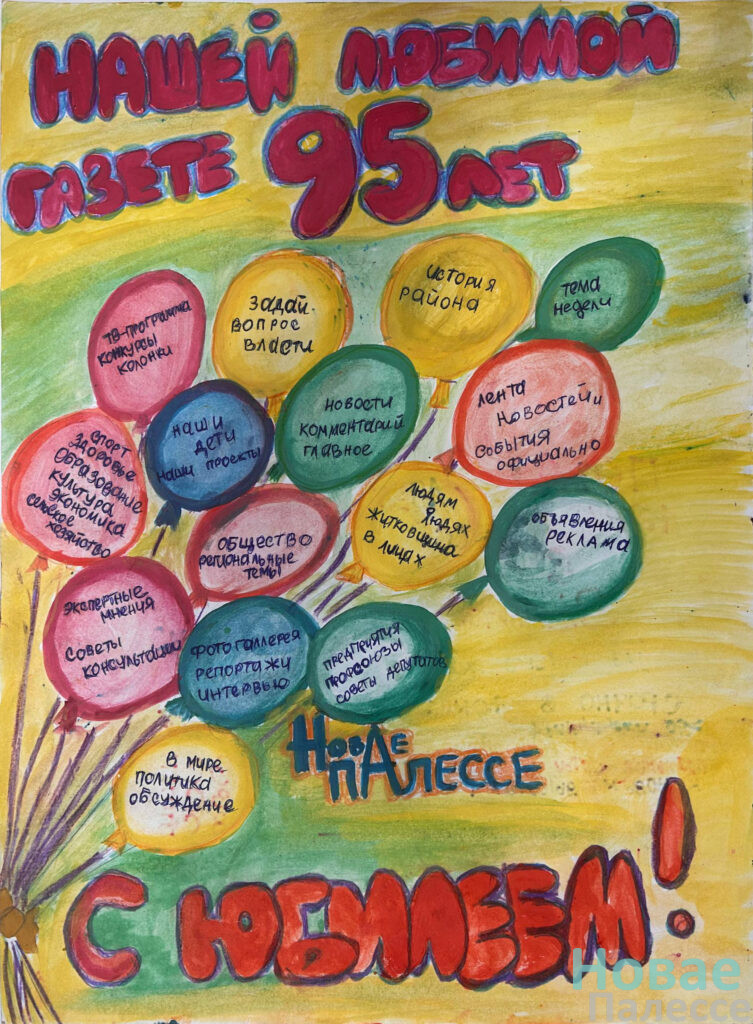 НАШЕЙ ЛЮБИМОЙ
ГАЗЕТЕ 95 ЛЕТ
ТВ-ПРОГРАММА
КОНКУРСЫ
КОЛОНКИ
ЗАДАЙ
ВОПРОС
ВЛАСТИ
ИСТОРИЯ
РАЙОНА
ТЕМА
НЕДЕЛИ
НАШИ
ДЕТИ
НАШИ ПРОЕКТЫ
НОВОСТИ
КОММЕНТАРИЙ
ГЛАВНОЕ
ЛЕНТА
НОВОСТЕЙ И
СОБЫТИЯ
ОФИЦИАЛЬНО
СПОРТ
ЗДОРОВЬЕ
ОБРАЗОВАНИЕ
КУЛЬТУРА
ЭКОНОМИКА
СЕЛЬСКОЕ
ХОЗЯЙСТВО
ОБЩЕСТВО
РЕГИОНАЛЬНЫЕ
ТЕМЫ
ЛЮДЯМ
О ЛЮДЯХ
ЖИТКОВЩИНА
В ЛИЦАХ
ОБЪЯВЛЕНИЯ
РЕКЛАМА
ЭКСПЕРТНЫЕ
МНЕНИЯ
СОВЕТЫ
КОНСУЛЬТАЦИИ
ФОТОГАЛЛЕРЕЯ
РЕПОРТАЖИ
ИНТЕРВЬЮ
ПРЕДПРИЯТИЯ
ПРОФСОЮЗЫ
СОВЕТЫ ДЕПУТАТОВ
НОВАЕ
ПАЛЕССЕ
В МИРЕ
ПОЛИТИКА
ОБСУЖДЕНИЕ
С ЮБИЛЕЕМ!
Новае
Палессе